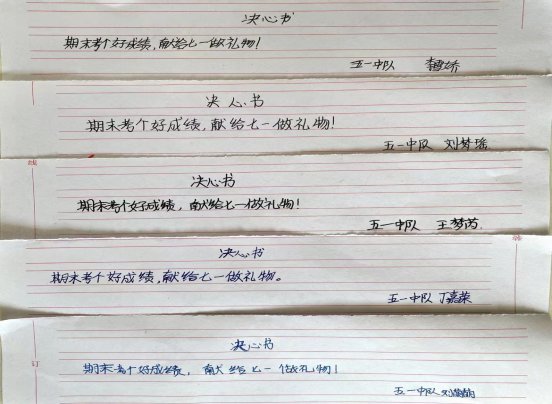 决心书
期末考个好成绩,献给七一做礼物!
五一中队 李娇
决心书
期末考个好成绩,献给七一做礼物!
五一中队 刘梦瑶
线
决心书
期末考个好成绩,献给七一做礼物!
五一中队 王梦芮
决心书
期末考个好成绩,献给七一做礼物。
五一中队 丁嘉荣
订
决心书
期末考个好成绩,献给七一做礼物!
五一中队 刘